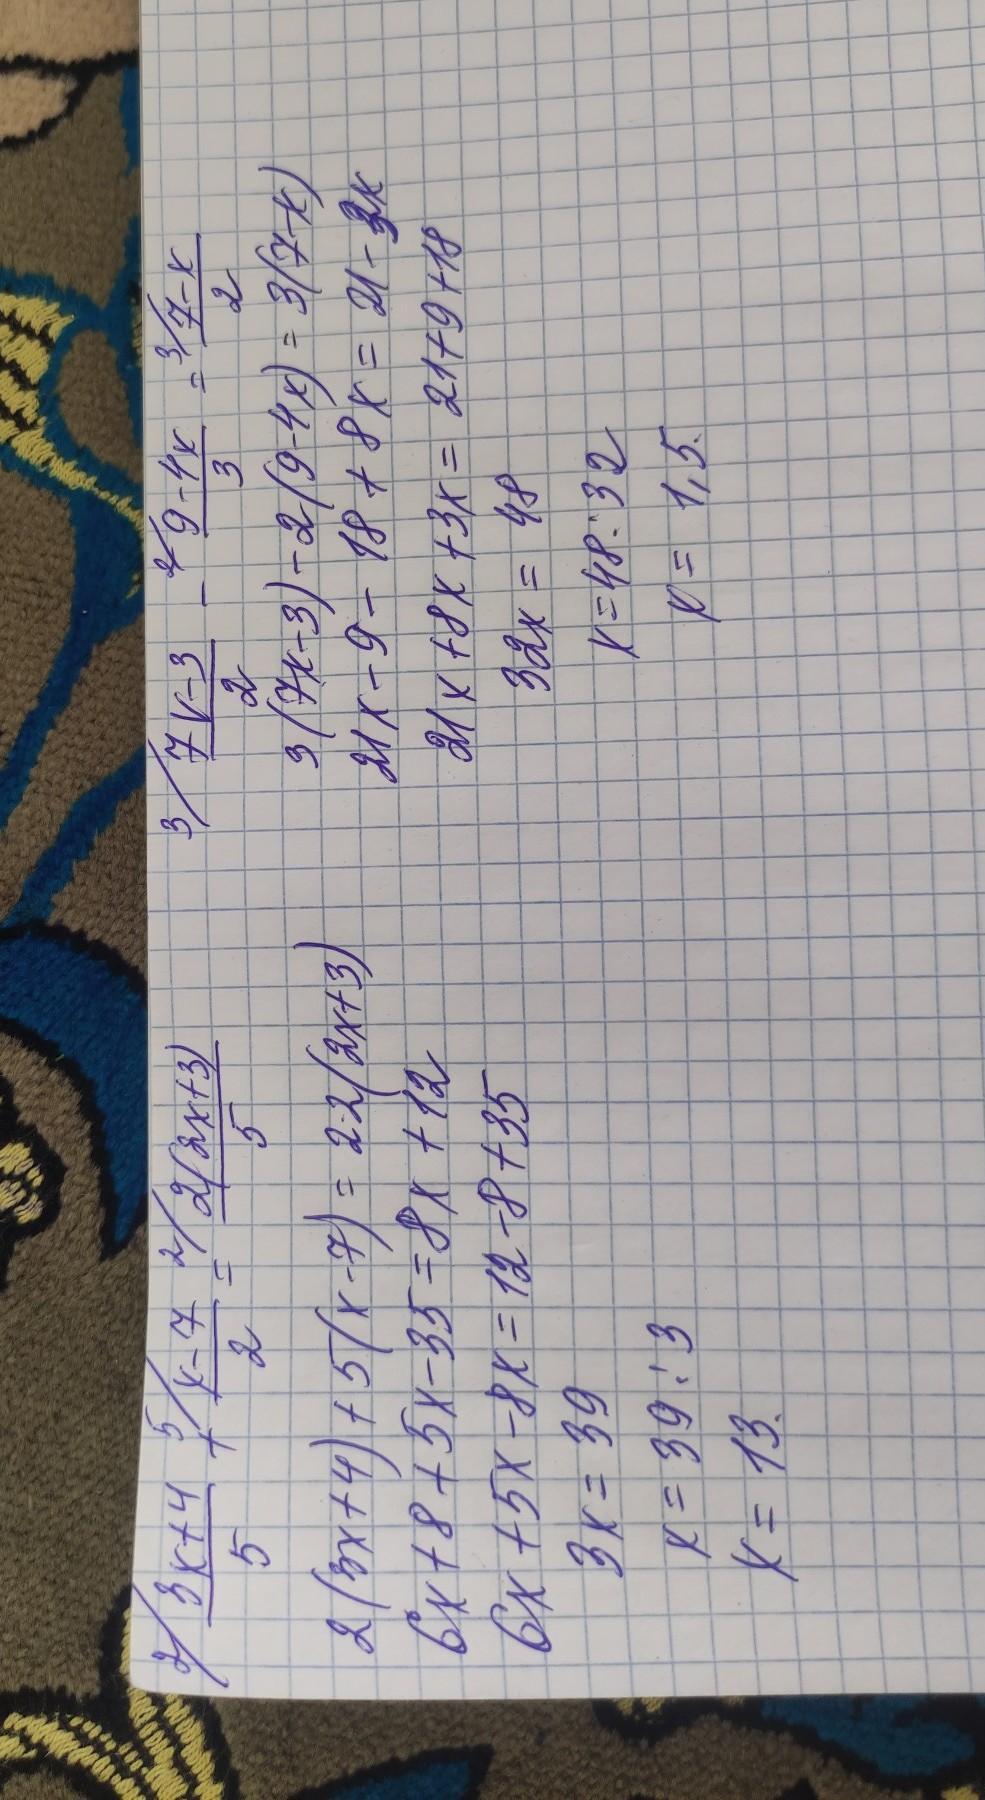 2/ 3x+4/5 + 5/ x-7/2 = 2/ 2(2x+3)/5
2(3x+4)+5(x-7)=2·2(2x+3)
6x+8+5x-35=8x+12
6x+5x-8x=12-8+35
3x=39
x=39:3
x=13.
3/ 7x-3/2 - 2/ 9-4x/3 = 3/ 7-x/2
3(7x-3)-2(9-4x)=3(7-x)
21x-9-18+8x=21-3x
21x+8x+3x=21+9+18
32x=48
x=48:32
x=1,5.